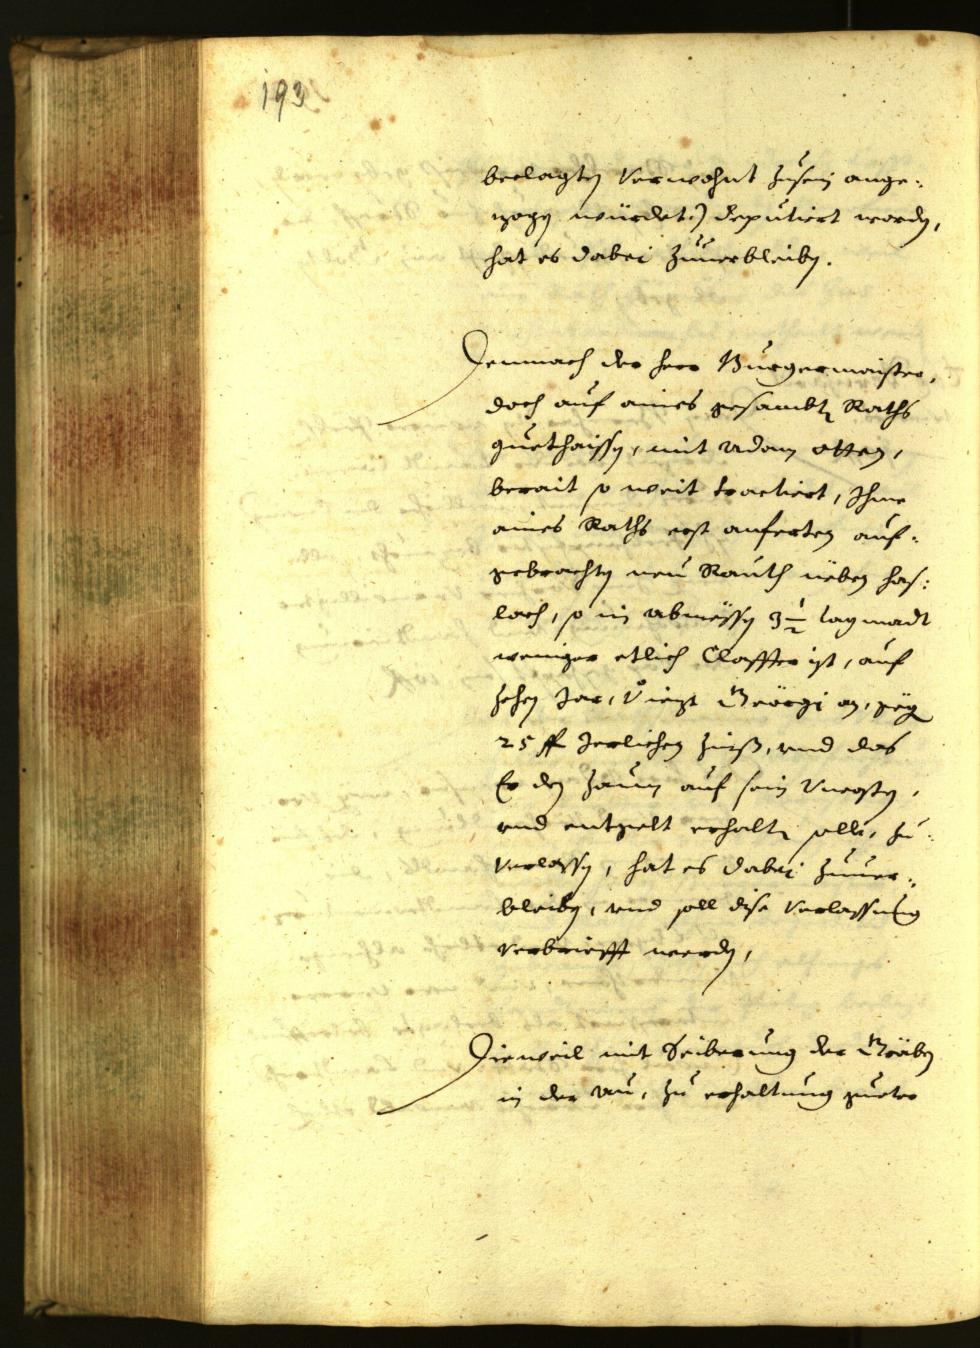 193
beclagten Verwohnt zusein ange=
zogen würdet:) deputiert worden,
hat es dabei zuuerbleiben.
Demnach der herr Burgermaister,
doch auf aines gesambten Raths
guethaissen, mit Adam Otten,
berait so weit tractiert, Ihme
aines Raths erst auferten auf=
gebrachten neu Rauth neben Has=
lach, so in abmessen 3 1/2 tagmadt
weniger etlich Claffter ist, auf
zehen Jar, V iezt Geörgi an, gegen
25 fl Jerlichen Zinß, vnd das
Er den Zaun auf sein Vncosten,
vnd entgelt erhalten solle, zu=
verlassen, hat es dabei zuuer=
bleiben, vnd soll dise Verlassung
verbriefft werden,
Dieweil mit Seiberung der Gräben
in der Au, zu erhaltung gueter